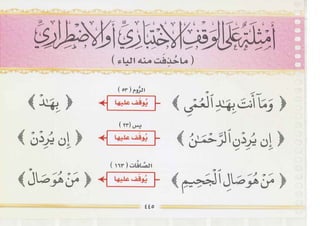 أَمْثِلَةٌ عَلَى الوَقْفِ الاِخْتِبَارِيِّ أَوِ الاِضْطِرَارِيِّ
( ما حُذِفَت منه الياء )
الرُّوم ( ٥٣ )
﴿ وَمَآ أَنتَ بِهَٰدِ ٱلْعُمْىِ ﴾ يُوقف عليها ﴿ بِهَٰدْ ﴾
يس (٢٣)
﴿ إِن يُرِدْنِ ٱلرَّحْمَٰنُ ﴾ يُوقف عليها ﴿ إِن يُرِدْنْ ﴾
الصَّافَّات ( ١٦٣ )
﴿ مَنْ هُوَ صَالِ ٱلْجَحِيمِ ﴾ يُوقف عليها ﴿ مَنْ هُوَ صَالْ ﴾
٤٤٥